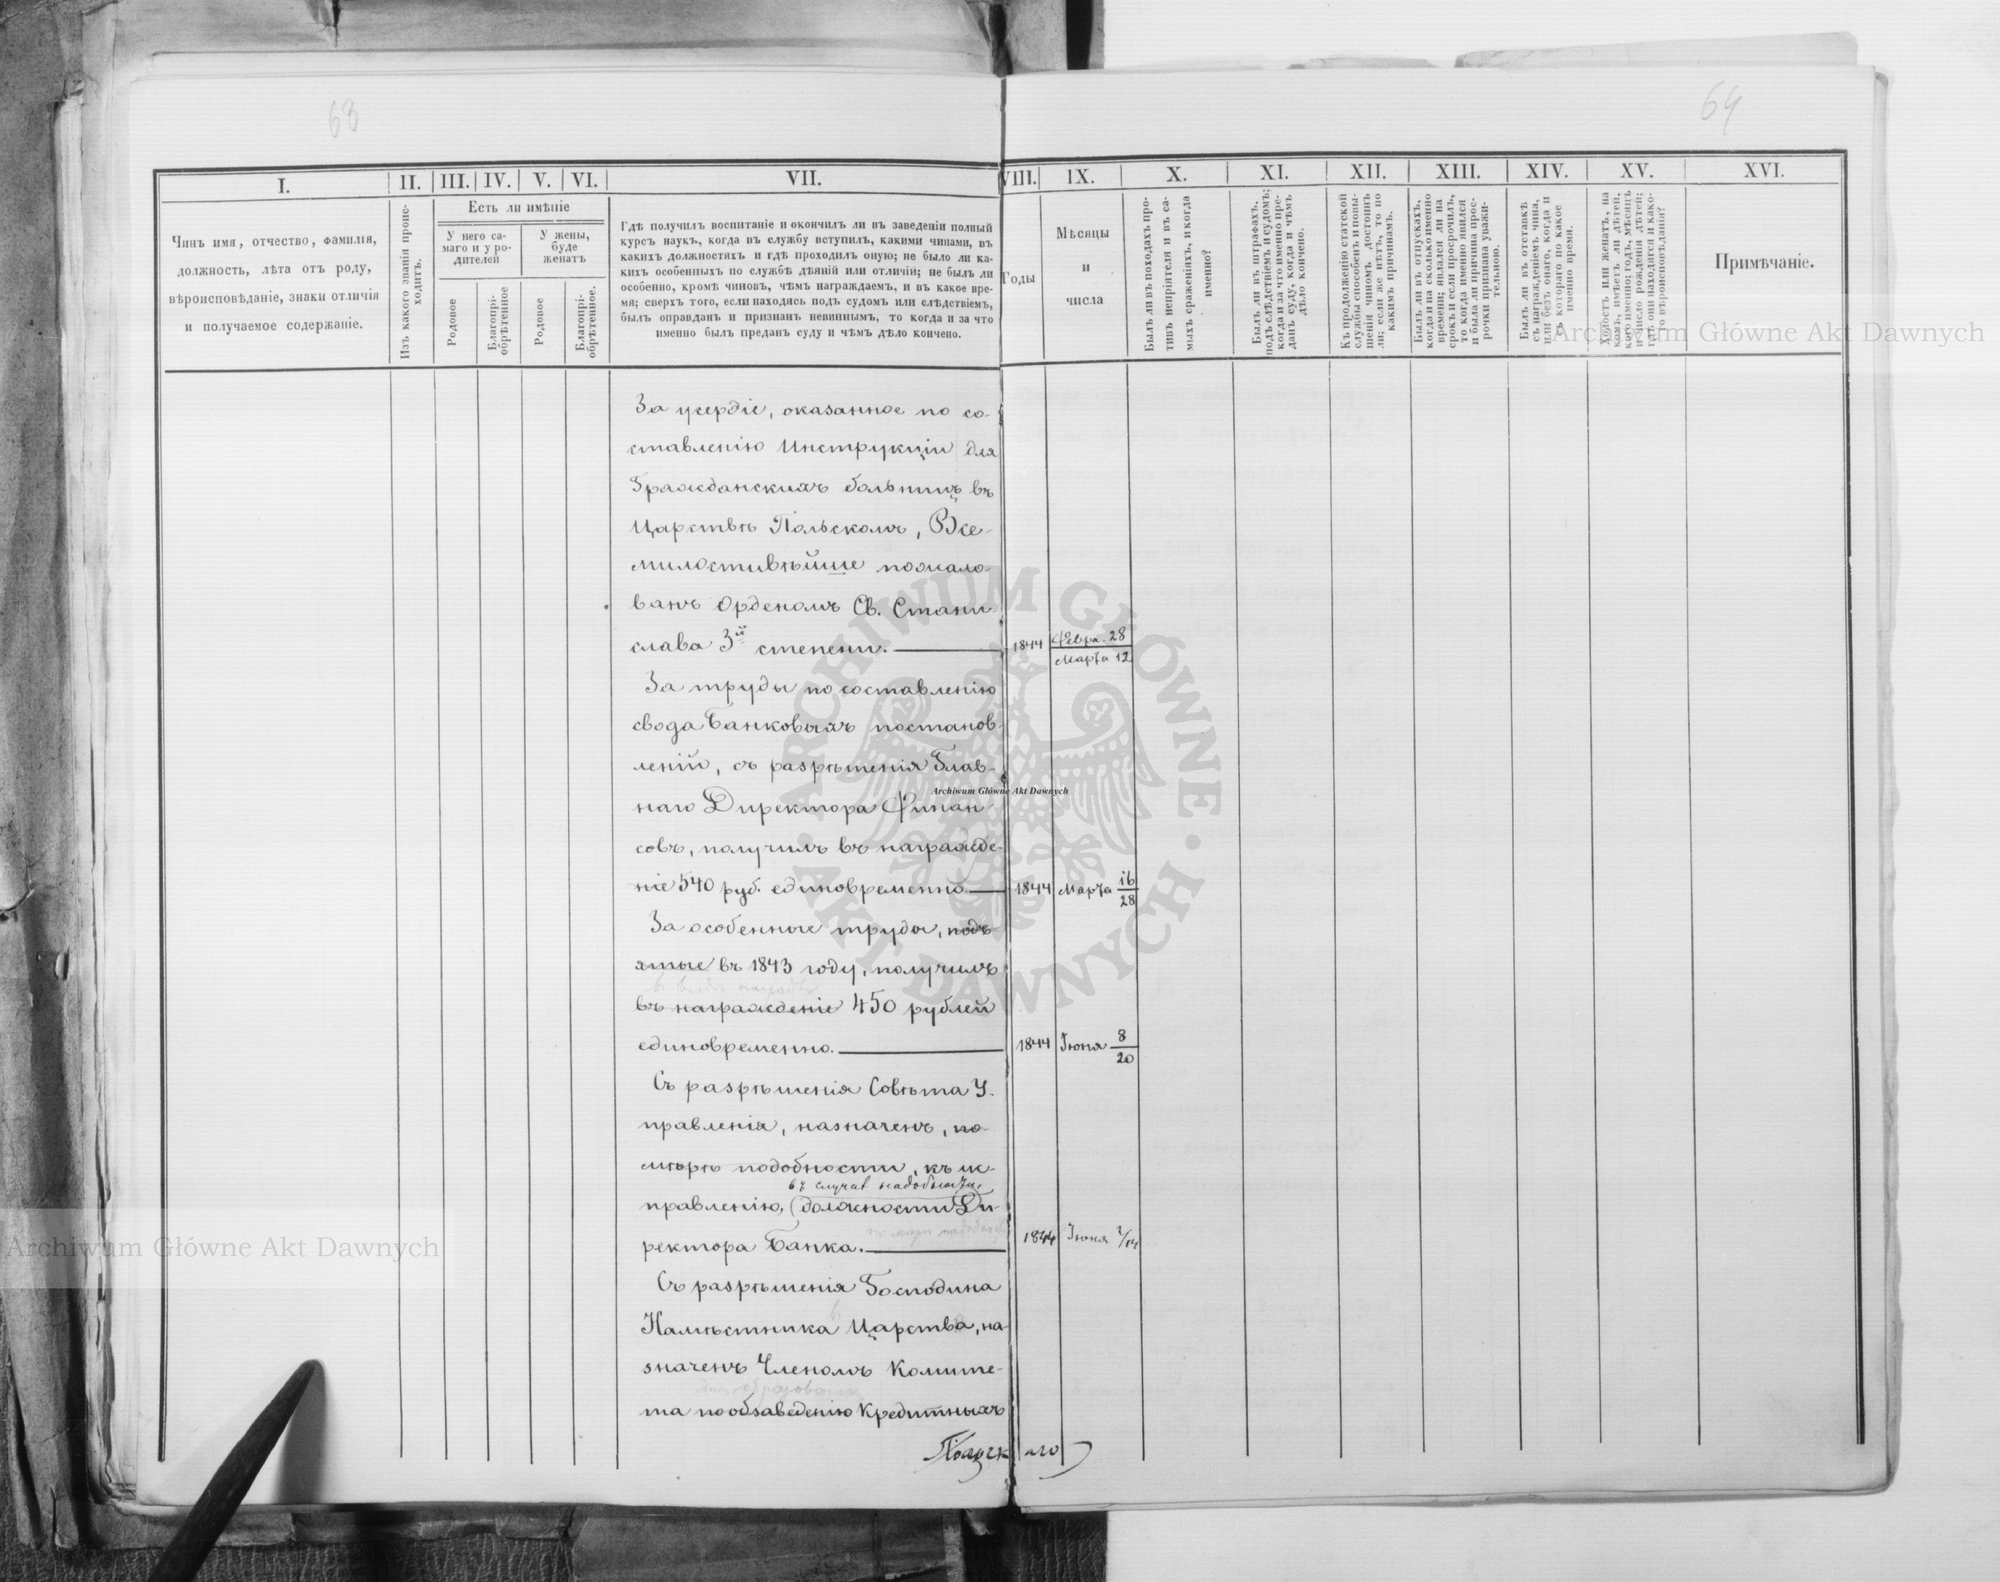 63
64
I.
II.
III.
IV.
V.
VI.
VII.
VIII.
IX.
X.
XI.
XII.
XIII.
XIV.
XV.
XVI.
Чинъ имя, отчество, фамилія,
должность, лѣта отъ роду,
вѣроисповѣданіе, знаки отличія
и получаемое содержаніе.
Изъ какого званія проис-
ходитъ.
Есть ли имѣніе
У него са-
маго и у ро-
дителей
У жены,
буде
женатъ
Родовое
Благопрі-
обрѣтенное
Родовое
Благопрі-
обрѣтенное.
Гдѣ получилъ воспитаніе и окончилъ ли въ заведеніи полный
курсъ наукъ, когда въ службу вступилъ, какими чинами, въ
какихъ должностяхъ и гдѣ проходилъ оную; не было ли ка-
кихъ особенныхъ по службѣ дѣяній или отличій; не былъ ли
особенно, кромѣ чиновъ, чѣмъ награждаемъ, и въ какое вре-
мя; сверхъ того, если находясь подъ судомъ или слѣдствіемъ,
былъ оправданъ и признанъ невиннымъ, то когда и за что
именно былъ преданъ суду и чѣмъ дѣло кончено.
Годы
Мѣсяцы
и
числа
Былъ ли въ походахъ про-
тивъ непріятеля и въ са-
мыхъ сраженіяхъ, и когда
именно?
Былъ ли въ штрафахъ,
подъ слѣдствіемъ и судомъ;
когда и за что именно пре-
данъ суду, когда и чѣмъ
дѣло кончено.
Къ продолженію статской
службы способенъ и повы-
шенія чиномъ достоинъ
ли; если же нѣтъ, то по
какимъ причинамъ.
Былъ ли въ отпускахъ,
когда и на сколько именно
времени; являлся ли на
срокъ и если просрочилъ,
то когда именно явился
и была ли причина прос-
рочки признана уважи-
тельною.
Былъ ли въ отставкѣ
съ награжденіемъ чина,
или безъ онаго, когда и
съ котораго по какое
именно время.
Холостъ или женатъ, на
комъ, имѣетъ ли дѣтей,
кого именно; годъ, мѣсяцъ
и число рожденія дѣтей;
гдѣ они находятся и како-
го вѣроисповѣданія?
Примѣчаніе.
За усердіе, оказанное по со-
ставленію Инструкціи для
Гражданскихъ больницъ въ
Царствѣ Польскомъ, Все-
милостивѣйше пожало-
ванъ Орденомъ Св. Стани
слава 3й степени.
1844 Февра. 28
Марта 12
За труды по составленію
свода Банковыхъ постанов-
леній, съ разрѣшенія Глав-
наго Директора Финан-
совъ, получилъ въ награжде-
ніе 540 руб. единовременно
1844 Марта 16
28
За особенные труды, подъ-
ятые въ 1843 году, получилъ
въ награжденіе 450 рублей
единовременно.
1844 Іюня 8
20
Съ разрѣшенія Совѣта У-
правленія, назначенъ, по
мѣрѣ подобности, къ ис-
въ случаѣ надобности,
правленію, должности Ди-
ректора Банка.
1844 Іюня 2/14
Съ разрѣшенія Господина
Намѣстника Царства, на-
значенъ Членомъ Комите-
та по обзаведенію Кредитныхъ
Archiwum Główne Akt Dawnych
Archiwum Główne Akt Dawnych
Archiwum Główne Akt Dawnych
ARCHIWUM GŁÓWNE AKT DAWNYCH